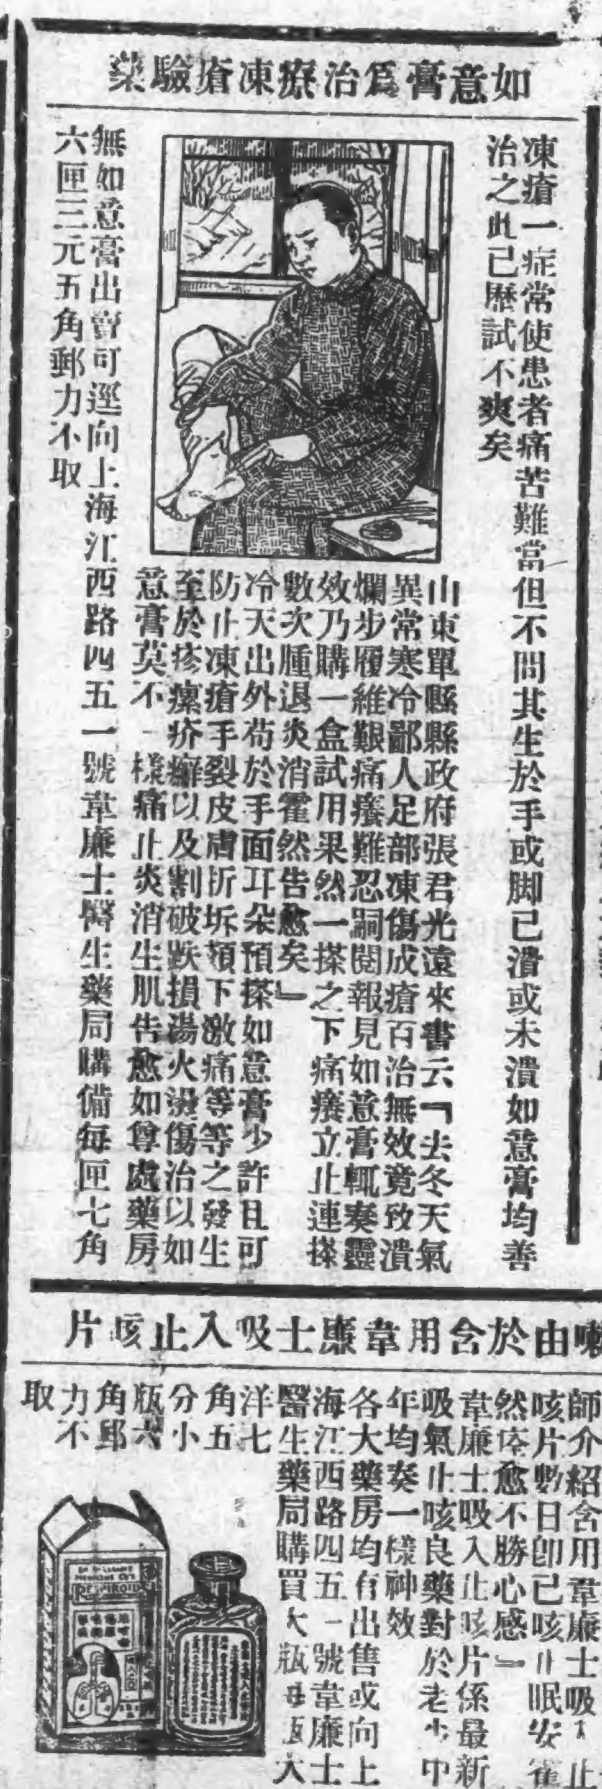 如意膏爲治療凍瘡驗藥
凍瘡一症常使患者痛苦難當但不問其生於手或脚已潰或未潰如意膏均善
治之此已歷試不爽矣
山東單縣縣政府張君光遠來書云『去冬天氣
異常寒冷鄙人足部凍傷成瘡百治無效竟致潰
爛步履維艱痛癢難忍嗣閱報見如意膏輒奏靈
效乃購一盒試用果然一搽之下痛癢立止連搽
數次腫退炎消霍然告愈矣』
冷天出外苟於手面耳朵預搽如意膏少許且可
防止凍瘡手裂皮膚折坼頦下激痛等等之發生
至於疹瘰疥癬以及割破跌損湯火燙傷治以如
意膏莫不一樣痛止炎消生肌告愈如尊處藥房
無如意膏出賣可逕向上海江西路四五一號韋廉士醫生藥局購備每匣七角
六匣三元五角郵力不取
由於含用韋廉士吸入止咳片
師介紹含用韋廉士吸入止
咳片數日卽已咳止眠安霍
然痊愈不勝心感』
韋廉士吸入止咳片係最新
吸氣止咳良藥對於老少中
年均奏一樣神效
各大藥房均有出售或向上
海江西路四五一號韋廉士
醫生藥局購買大瓶每瓶大
洋七
角五
分小
瓶六
角郵
力不
取
RESPIROIDS